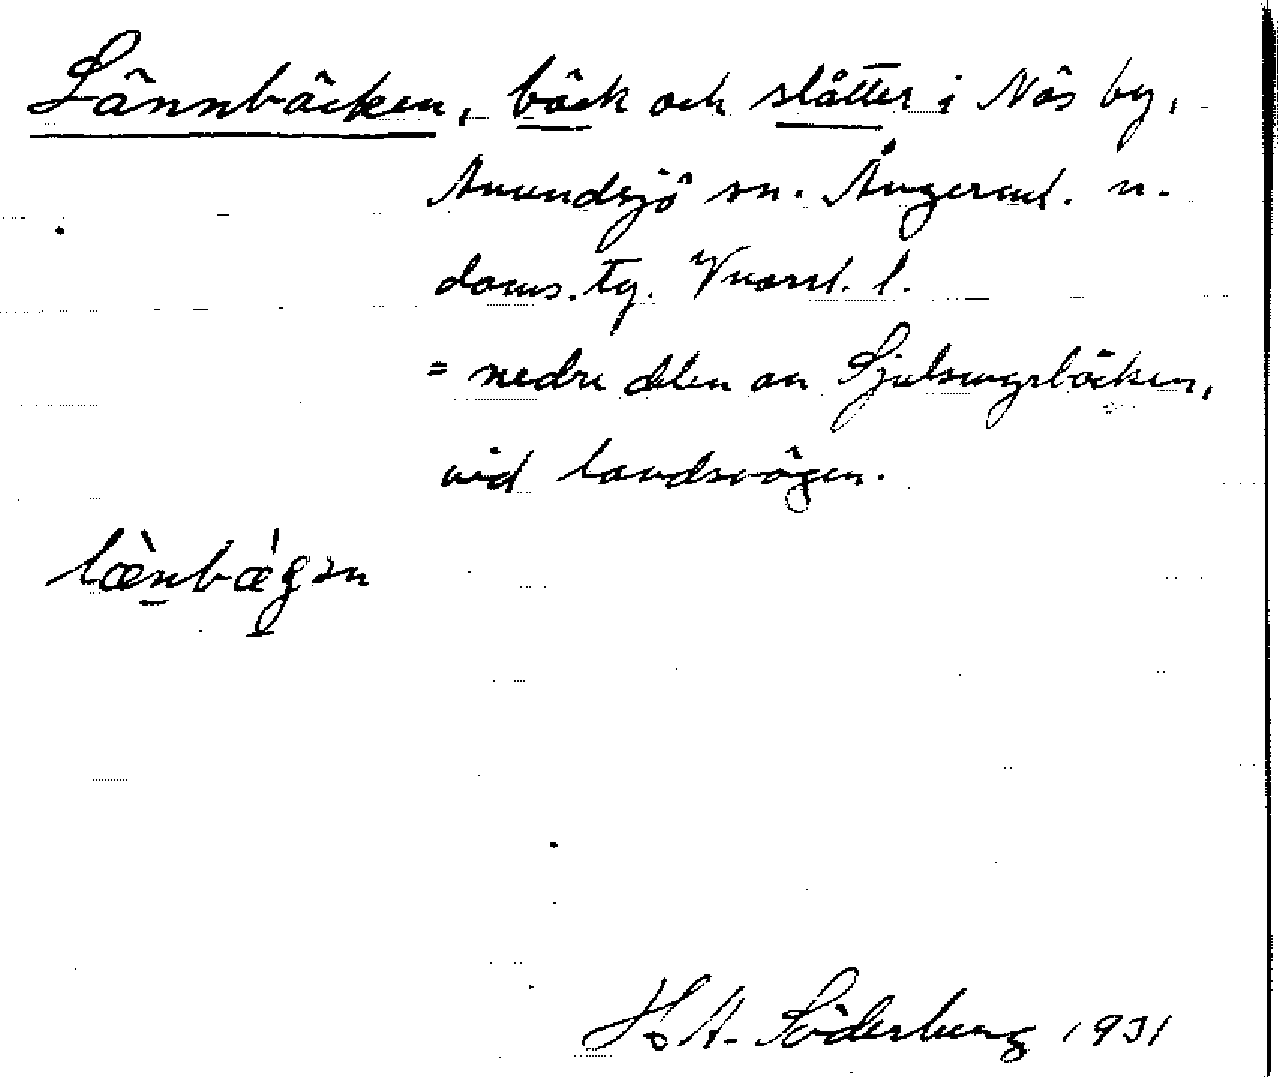 Lännbäcken, bäck och slåtter i Näs by,
Anundsjö sn. Ångerml. n.
doms. tg. Vnorrl. l.
= nedre delen av Sjulsmyrbäcken,
vid landsvägen.
læ̀nbǽgən
H A. Söderberg 1931